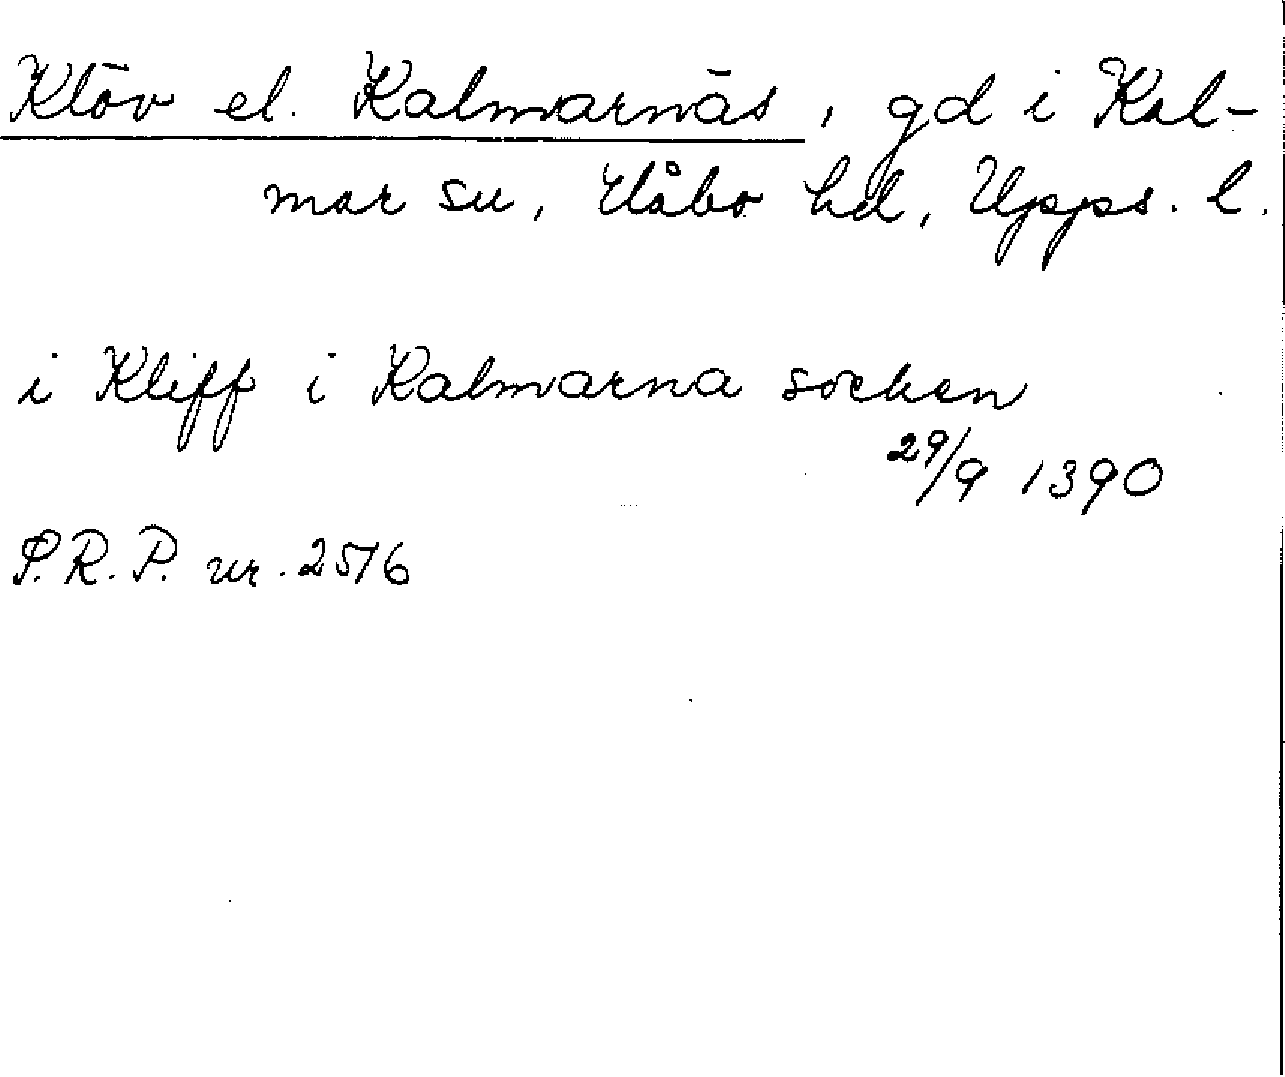 Klöv el. Kalmarnäs, gd i Kal-
mar sn, Håbo hd, Upps. l.
i Kliff i Kalmarna socken
29/9 1390
S.R.P. nr. 2516